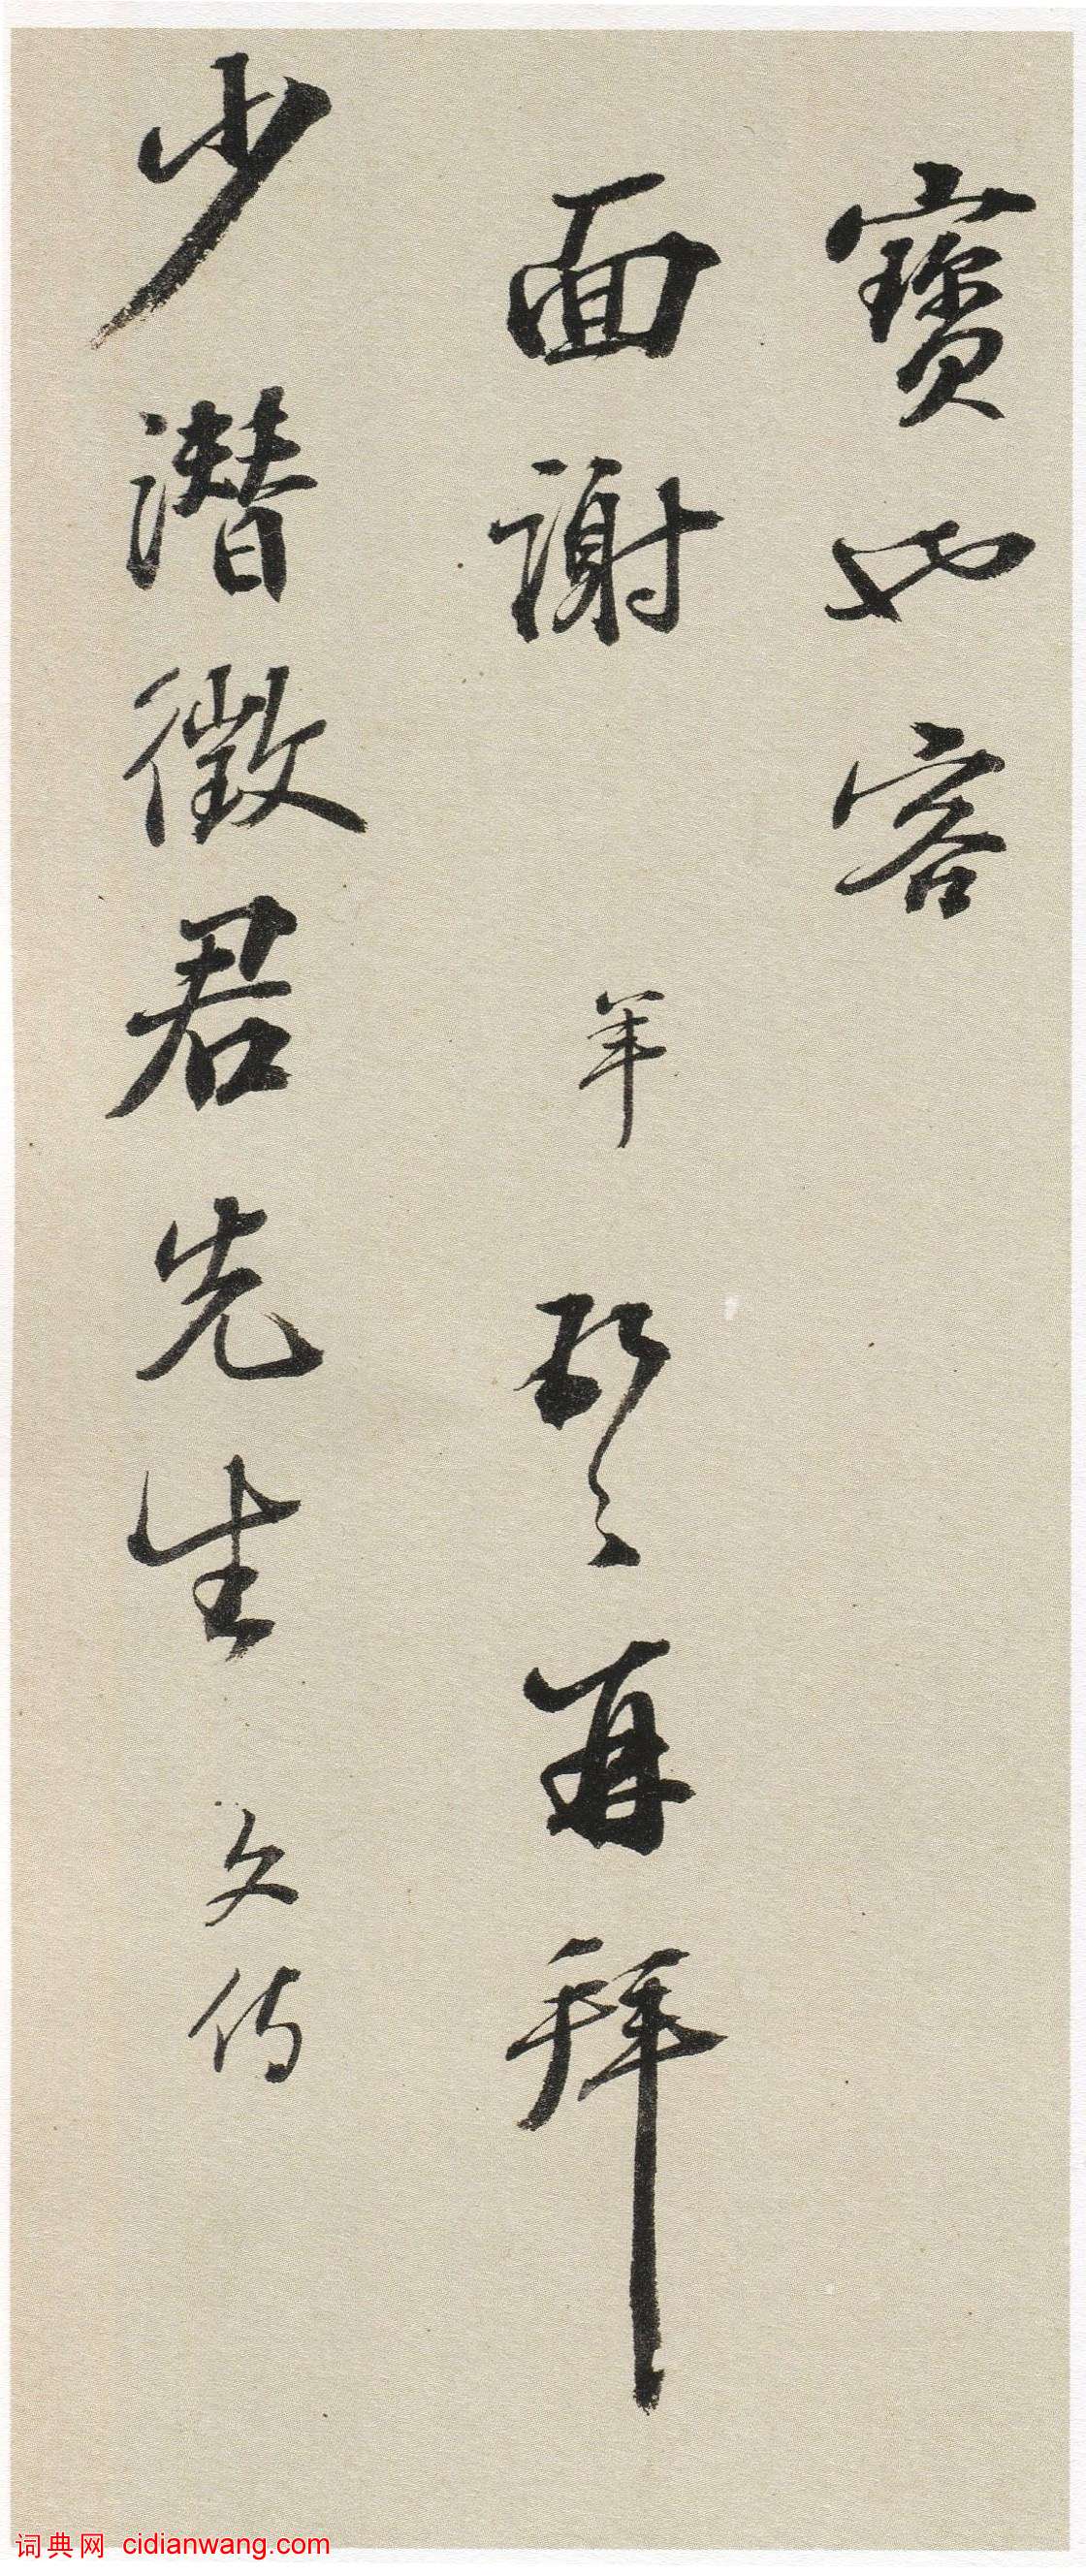 寶也容
面謝 年 頓首再拜
少潛徵君先生 文侍
词典网 cidianwang.com